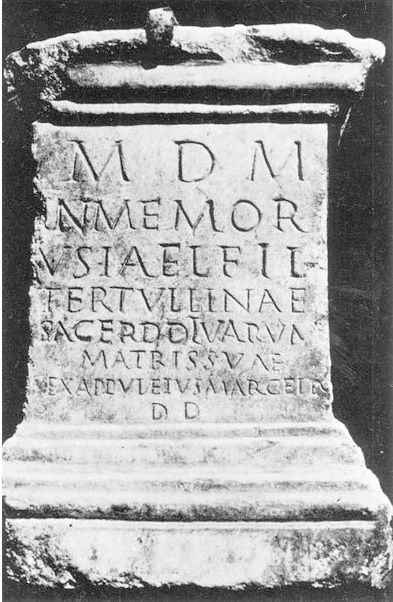 M D M
IN MEMOR
VSIAE L FIL
TERTVLLINAE
SACERD DIVARVM
MATRIS SVAE
EX APPVLEIVS MARCELL
D D